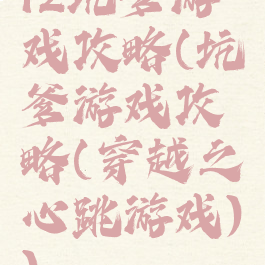 坑爹游
戏攻略(坑
爹游戏攻
略(穿越之
心跳游戏)
)